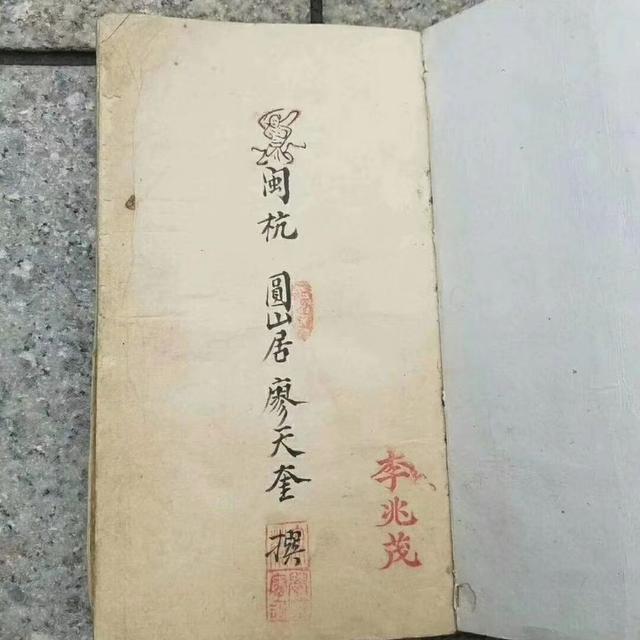 閩杭 圓山居廖天奎 撰
李兆茂